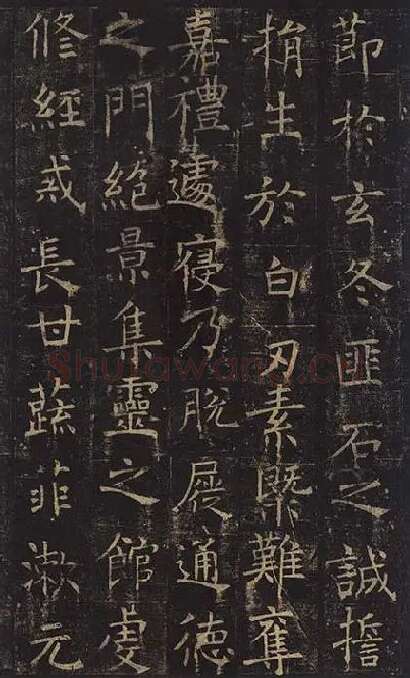 節於玄冬匪石之誠誓
捐生於白刃素槩難奪
嘉禮遽寢乃脫屣通德
之門絕景集靈之館虔
修經戒長甘蔬菲漱元
Shufawang.cn